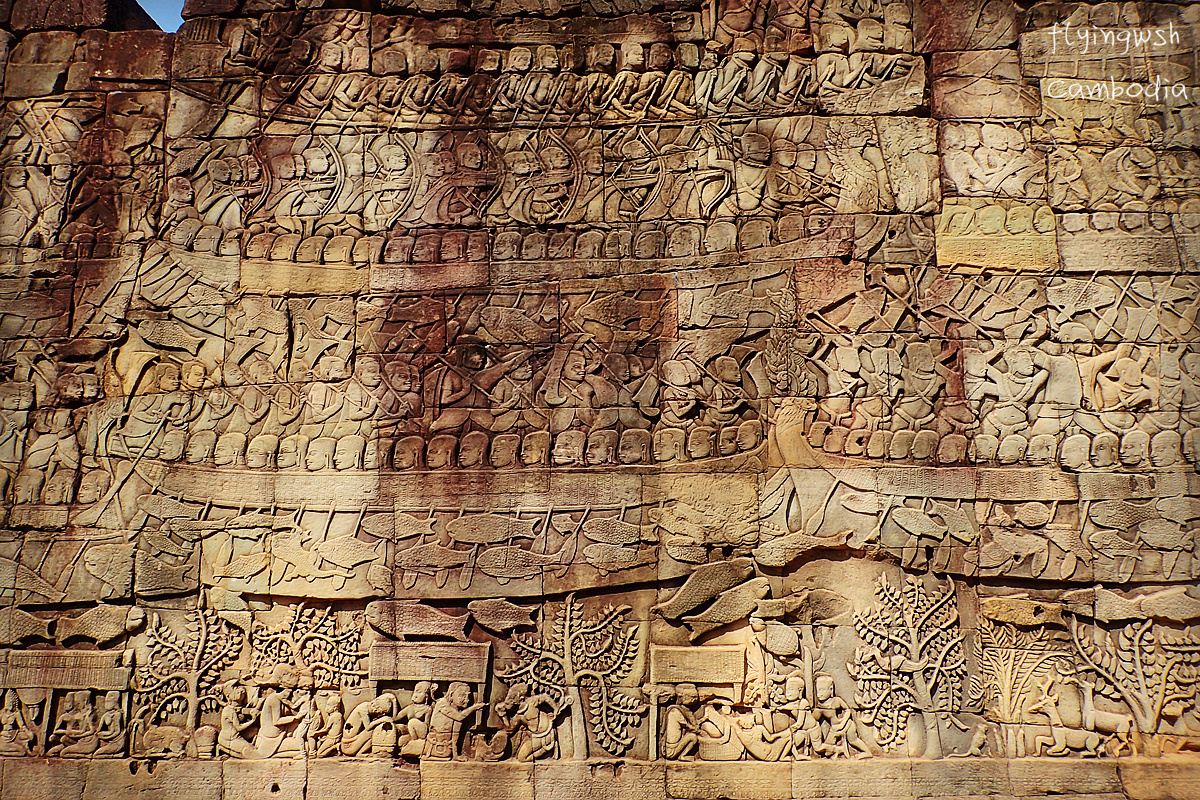 flyingwsh
Cambodia